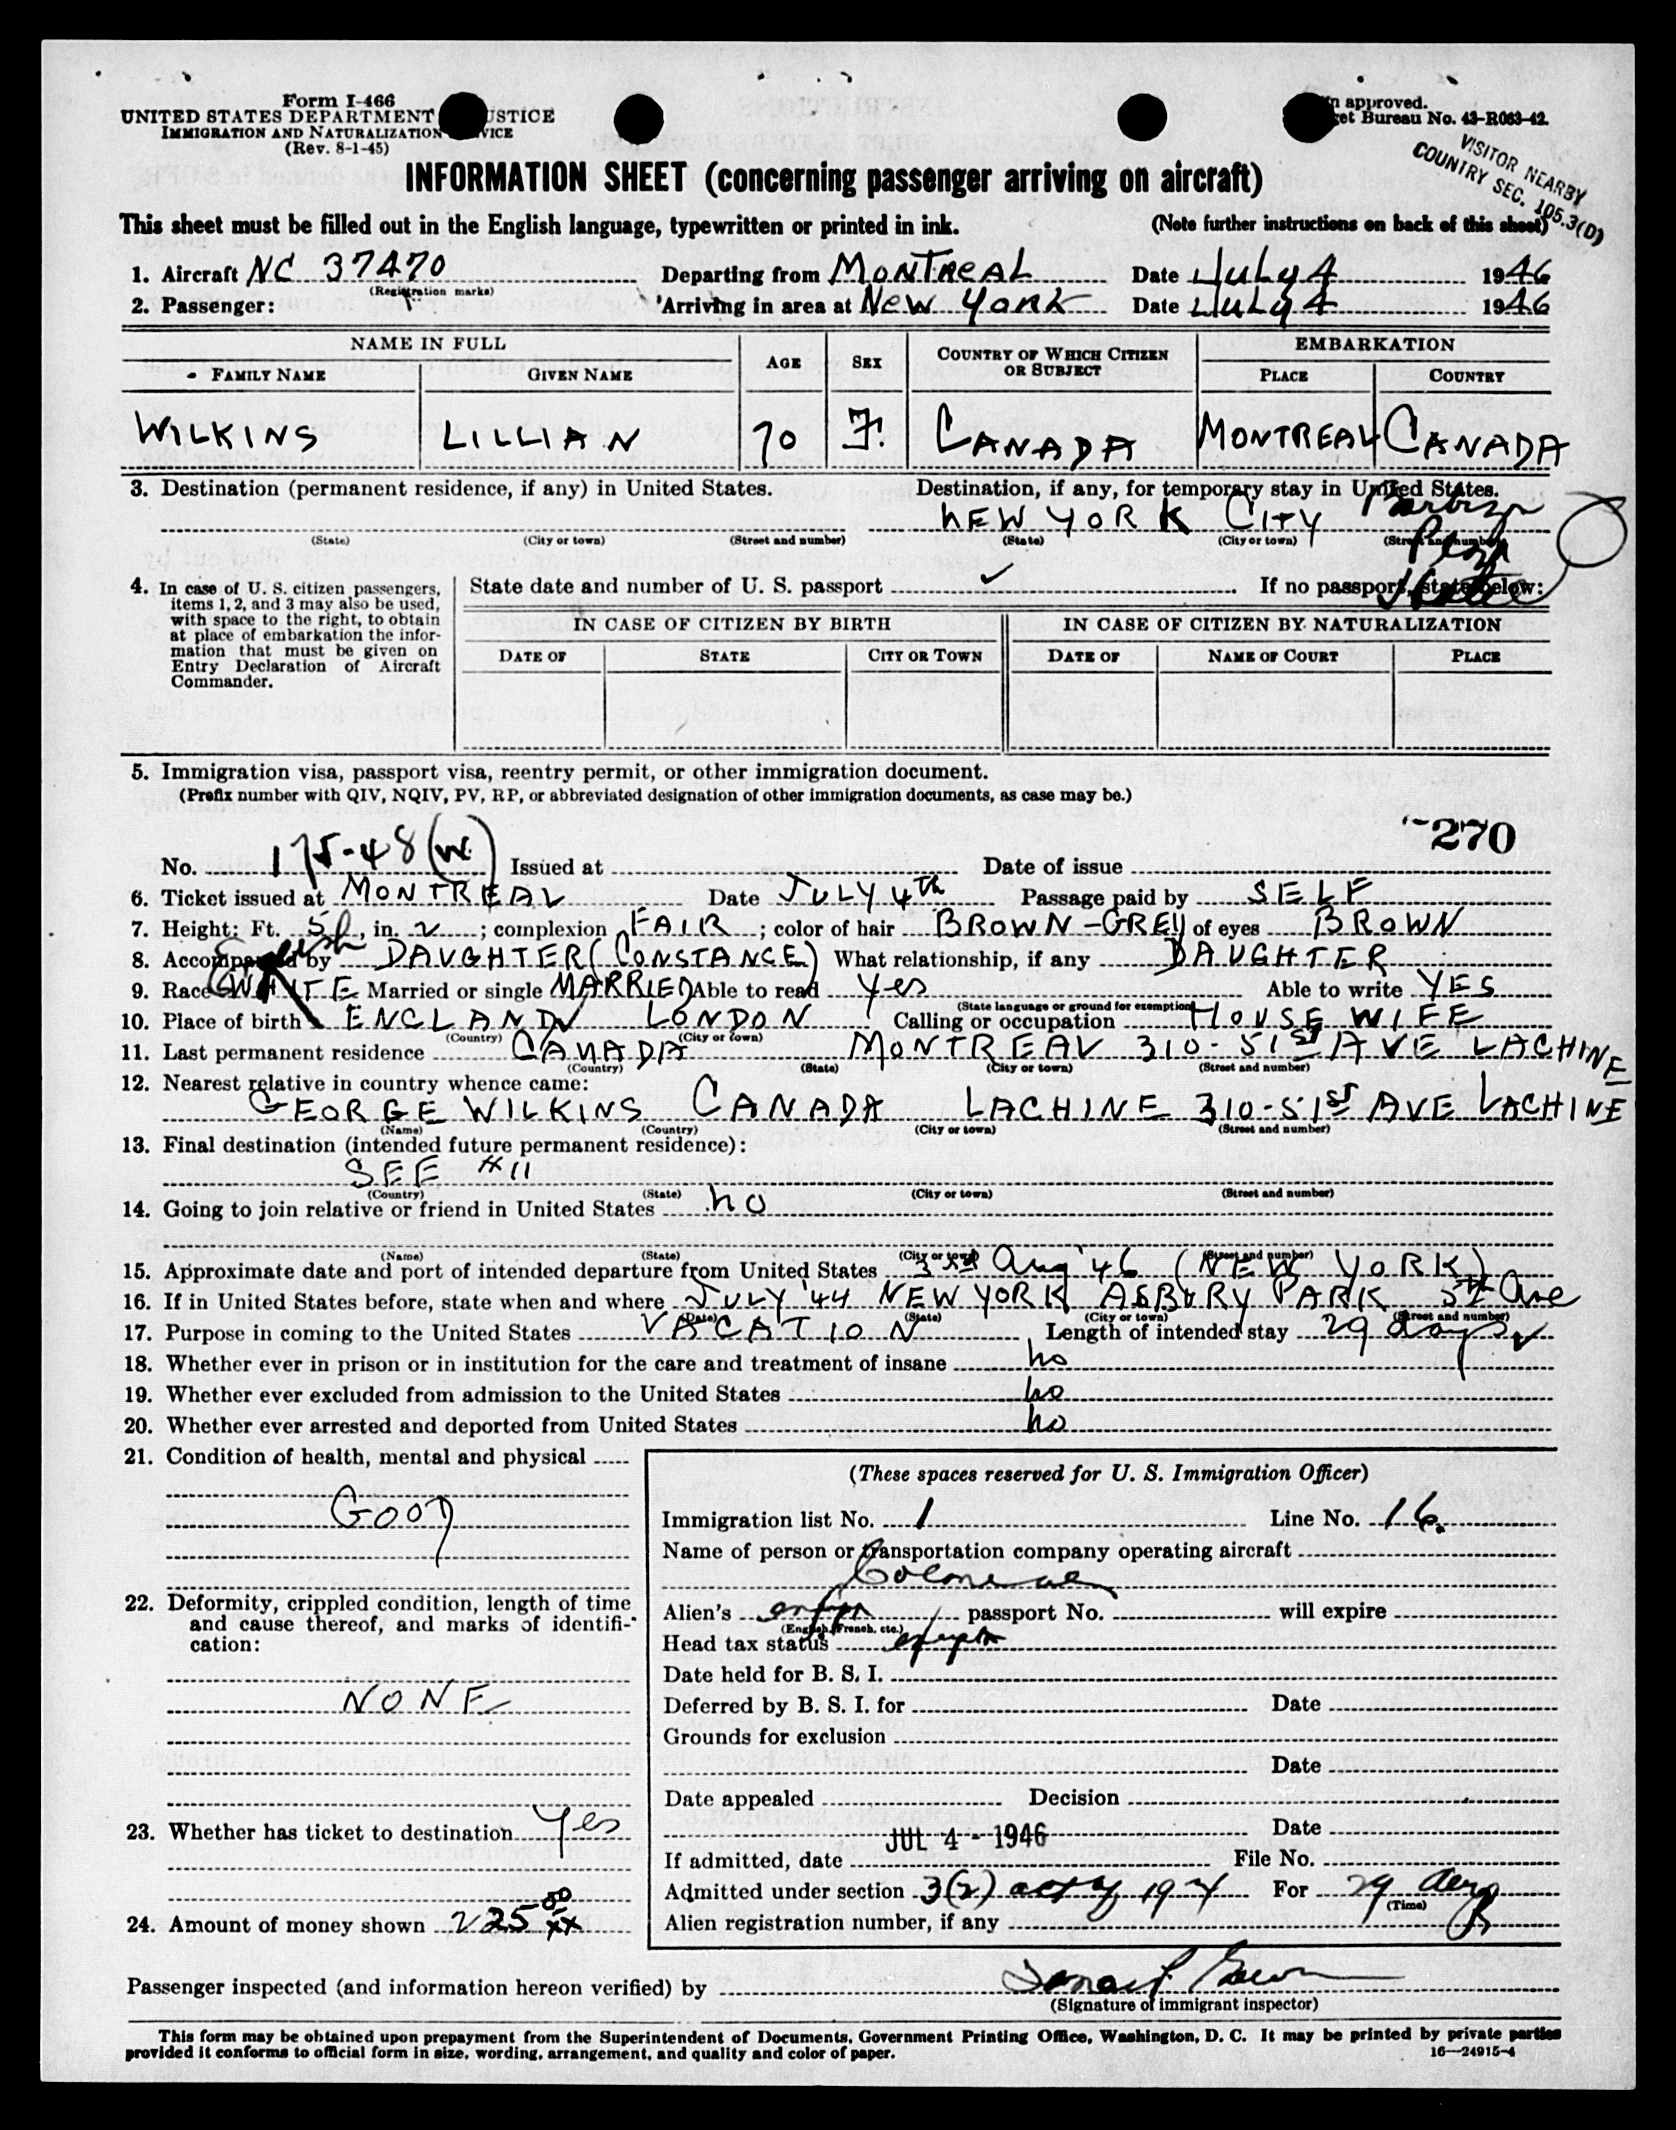 Form I-466
UNITED STATES DEPARTMENT USTICE
IMMIGRATION AND NATURALIZATION VICE
(Rev. 8-1-45)
n approved.
et Bureau No. 43-R063-42.
VISITOR NEARBY
COUNTRY SEC. 105.3(D)
INFORMATION SHEET (concerning passenger arriving on aircraft)
This sheet must be filled out in the English language, typewritten or printed in ink. (Note further instructions on back of this sheet)
1. Aircraft NC 37470 Departing from MONTREAL Date July 4 1946
(Registration marks)
2. Passenger: Arriving in area at New York Date July 4 1946
NAME IN FULL AGE SEX COUNTRY OF WHICH CITIZEN OR SUBJECT EMBARKATION
FAMILY NAME GIVEN NAME PLACE COUNTRY
WILKINS LILLIAN 70 F. CANADA MONTREAL CANADA
3. Destination (permanent residence, if any) in United States. Destination, if any, for temporary stay in United States.
NEW YORK CITY Barbizon
(State) (City or town) (Street and number) (State) (City or town) (Street and number)
Plaza
4. In case of U. S. citizen passengers, items 1, 2, and 3 may also be used, with space to the right, to obtain at place of embarkation the information that must be given on Entry Declaration of Aircraft Commander.
State date and number of U. S. passport ✓ If no passport, state below:
IN CASE OF CITIZEN BY BIRTH IN CASE OF CITIZEN BY NATURALIZATION
DATE OF STATE CITY OR TOWN DATE OF NAME OF COURT PLACE
5. Immigration visa, passport visa, reentry permit, or other immigration document.
(Prefix number with QIV, NQIV, PV, RP, or abbreviated designation of other immigration documents, as case may be.)
270
No. 175-48 (W.) Issued at Date of issue
6. Ticket issued at MONTREAL Date JULY 4th Passage paid by SELF
7. Height: Ft. 5, in. 2; complexion FAIR; color of hair BROWN-GREY of eyes BROWN
8. Accompanied by DAUGHTER (CONSTANCE) What relationship, if any DAUGHTER
English
9. Race WHITE Married or single MARRIED Able to read Yes Able to write YES
(State language or ground for exemption)
10. Place of birth ENGLAND LONDON Calling or occupation HOUSE WIFE
(Country) (City or town)
11. Last permanent residence CANADA MONTREAL 310-51ST AVE LACHINE
(Country) (State) (City or town) (Street and number)
12. Nearest relative in country whence came:
GEORGE WILKINS CANADA LACHINE 310-51ST AVE LACHINE
(Name) (Country) (City or town) (Street and number)
13. Final destination (intended future permanent residence):
SEE #11
(Country) (State) (City or town) (Street and number)
14. Going to join relative or friend in United States NO
(Name) (State) (City or town) (Street and number)
15. Approximate date and port of intended departure from United States 3rd Aug '46 (NEW YORK)
16. If in United States before, state when and where JULY '44 NEW YORK ASBURY PARK 5th Ave
(Date) (State) (City or town) (Street and number)
17. Purpose in coming to the United States VACATION Length of intended stay 29 days ✓
18. Whether ever in prison or in institution for the care and treatment of insane no
19. Whether ever excluded from admission to the United States no
20. Whether ever arrested and deported from United States no
21. Condition of health, mental and physical
GOOD
22. Deformity, crippled condition, length of time and cause thereof, and marks of identification:
NONE
23. Whether has ticket to destination Yes
24. Amount of money shown 225 00/XX
(These spaces reserved for U. S. Immigration Officer)
Immigration list No. 1 Line No. 16.
Name of person or transportation company operating aircraft
Colonial
Alien's passport No. will expire
(English, French, etc.)
Head tax status exempt
Date held for B. S. I.
Deferred by B. S. I. for Date
Grounds for exclusion
Date
Date appealed Decision
Date
JUL 4 - 1946
If admitted, date File No.
Admitted under section 3(2) act of 1924 For 29 days
(Time)
Alien registration number, if any
Passenger inspected (and information hereon verified) by
(Signature of immigrant inspector)
This form may be obtained upon prepayment from the Superintendent of Documents, Government Printing Office, Washington, D. C. It may be printed by private parties
provided it conforms to official form in size, wording, arrangement, and quality and color of paper. 16—24915-4